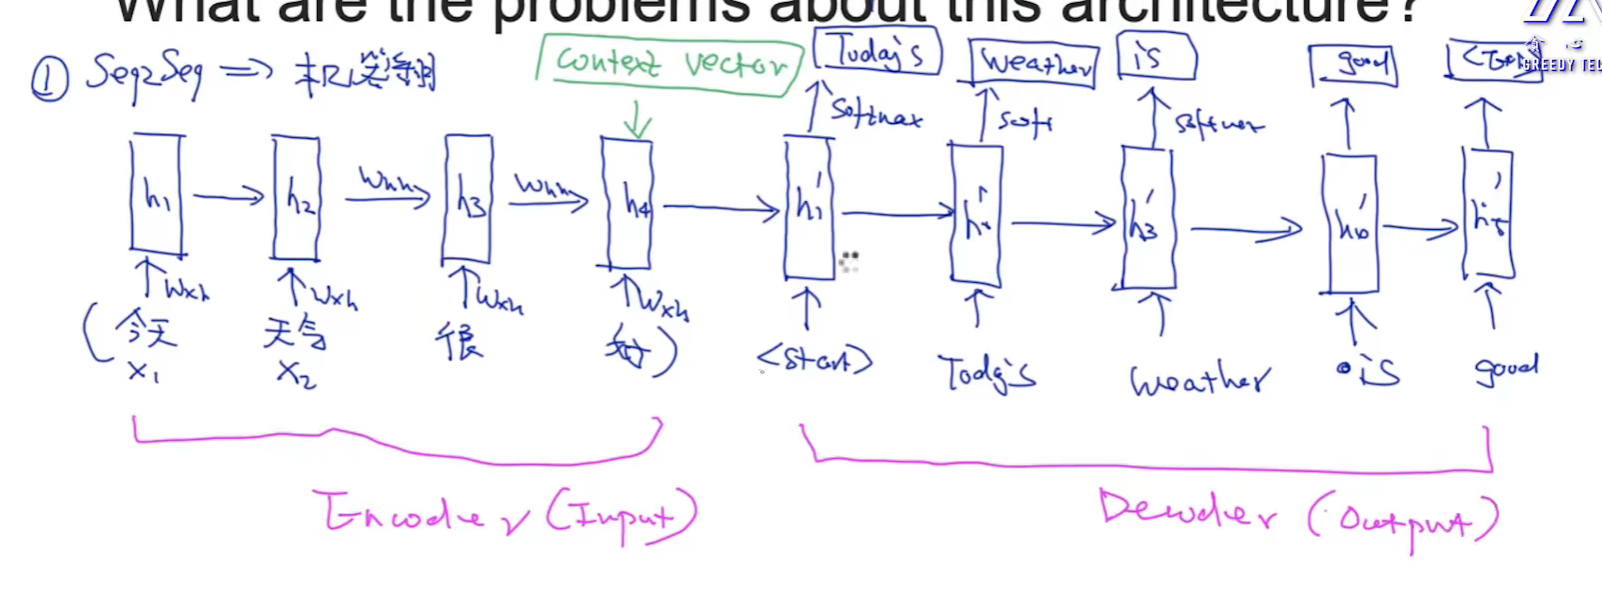 What are the problems about this architecture?
① Seq2Seq => 机器翻译
context vector
Today's weather is good
softmax soft softmax
GREEDY TEL
h1 h2 h3 h4 h1' h2' h3' h4' h5'
Whh Whh
Wxh Wxh Wxh Wxh
(今天 天气 很 好) <start> Today's weather is good
x1 x2
Encoder (Input) Decoder (Output)